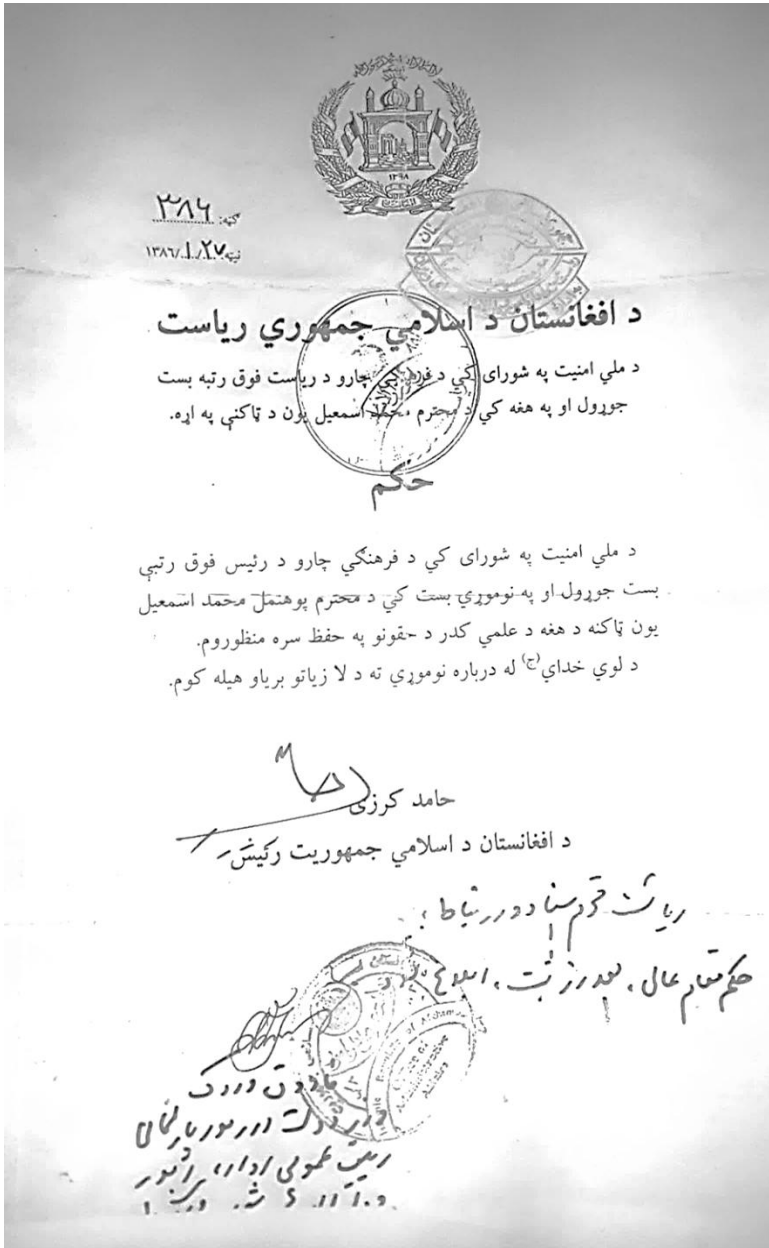 ۱۳۹۸
ګڼه: ۳۸۶
نېټه ۱۳۸۶/۱/۲۷
د افغانستان د اسلامي جمهوري ریاست
د ملي امنیت په شورای کي د فرهنګي چارو د ریاست فوق رتبه بست
جوړول او په هغه کي د محترم محمد اسمعیل یون د ټاکنې په اړه.
حکم
د ملي امنیت په شورای کي د فرهنګي چارو د رئیس فوق رتبې
بست جوړول او په نوموړي بست کي د محترم پوهنمل محمد اسمعیل
یون ټاکنه د هغه د علمي کدر د حقونو په حفظ سره منظوروم.
د لوي خدای(ج) له درباره نوموړي ته د لا زیاتو بریاو هیله کوم.
حامد کرزی
د افغانستان د اسلامي جمهوریت رئیس
ریاست محترم اسناد و ارتباط:
حکم مقام عالی، بعد از ثبت،
Office of Administrative Affairs
فاروق وردک
وزیر دولت در امور پارلمانی
رییس عمومی اداره امور